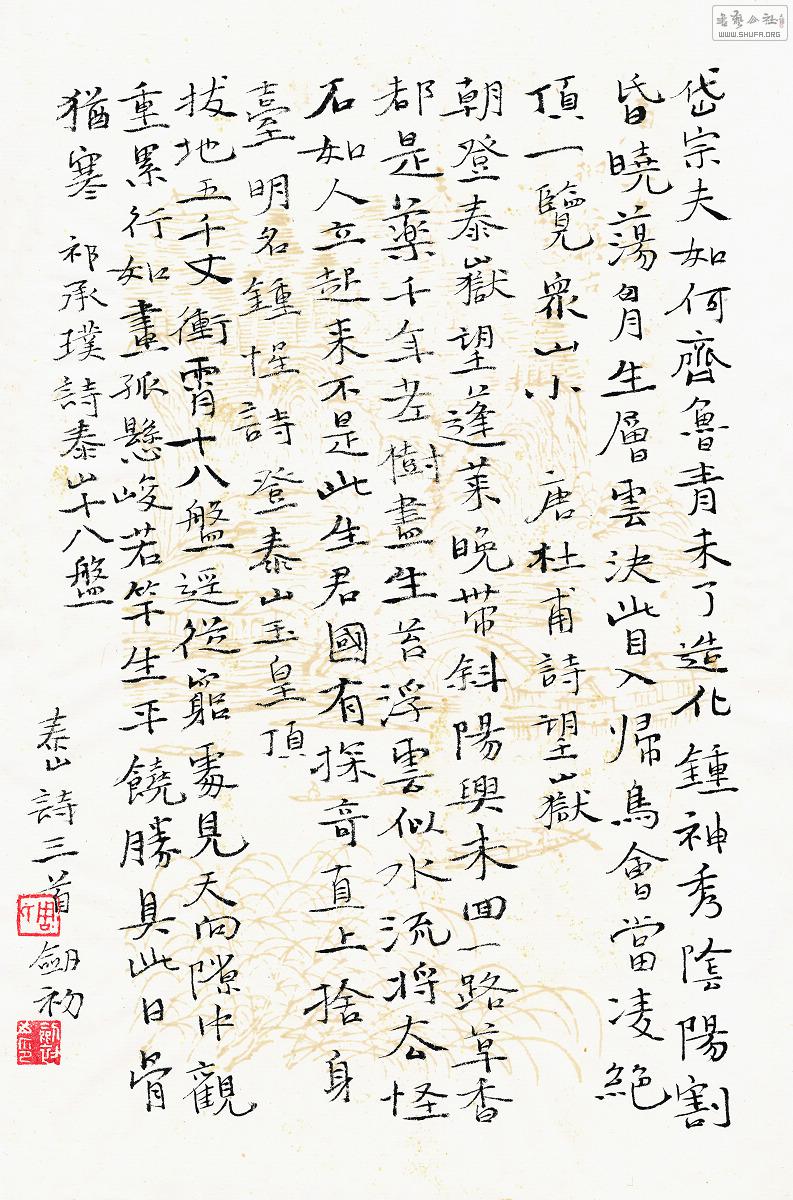 岱宗夫如何齊魯青未了造化鍾神秀陰陽割
昏曉蕩胷生層雲決眥入歸鳥會當凌絕
頂一覽眾山小 唐杜甫詩望嶽
朝登泰嶽望蓬萊晚帶斜陽興未回一路草香
都是藥千年老樹盡生苔浮雲似水流將去怪
石如人立起来不是此生君國有探奇直上捨身
臺 明名鍾惺詩 登泰山玉皇頂
拔地五千丈衝霄十八盤遥從窮處見天向隙中觀
重累行如畫孤懸峻若竿生平饒勝具此日骨
猶寒 祁承璞詩泰山十八盤
泰山詩三首 劍初
书艺公社
WWW.SHUFA.ORG